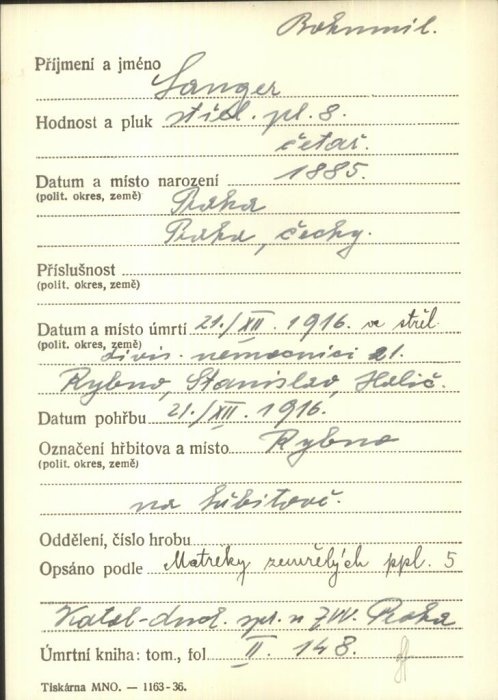 Bohumil.
Příjmení a jméno Langer
Hodnost a pluk střel. pl. 8.
četař.
Datum a místo narození 1885.
(polit. okres, země) Praha
Praha, čechy.
Příslušnost
(polit. okres, země)
Datum a místo úmrtí 21./XII. 1916. ve střel
(polit. okres, země) divis. nemocnici 21.
Rybno, Stanislav, Halič.
Datum pohřbu 21./XII. 1916.
Označení hřbitova a místo Rybno
(polit. okres, země)
na hřbitově.
Oddělení, číslo hrobu
Opsáno podle Matriky zemřelých ppl. 5
Praha
Úmrtní kniha: tom., fol. II. 148.
Tiskárna MNO. — 1163-36.